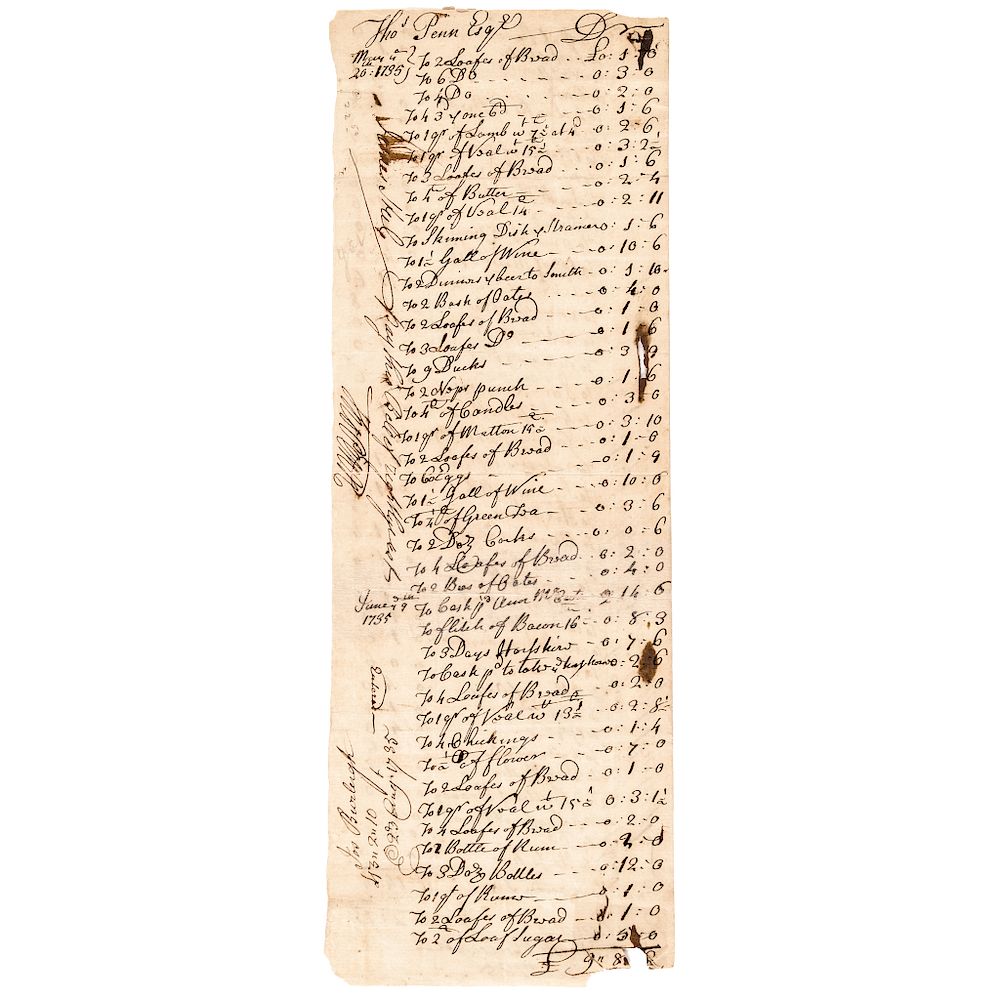 Thos Penn Esqr Dr
May ye 20: 1735 To 2 Loafes of Bread £0: 1: 0
To 6 Do 0: 3: 0
To 4 Do 0: 2: 0
To 4 3d & one 6d 0: 1: 6
To 1 qr of Lamb wt 7½ at 4d 0: 2: 6
To 1 qr of Veal wt 15½ 0: 3: 2½
To 3 Loafes of Bread 0: 1: 6
To 4 of Butter 0: 2: 4
To 1 qr of Veal 14 0: 2: 11
To Skiming Dish & Strainer 0: 1: 6
To 1½ Gall of Wine 0: 10: 6
To 2 Dinners & beer to Smith 0: 1: 10
To 2 Bush of Oates 0: 4: 0
To 2 Loafes of Bread 0: 1: 0
To 3 Loafes Do 0: 1: 6
To 9 Ducks 0: 3: 9
To 2 punch 0: 1: 6
To 4 of Candles 0: 3: 0
To 1 qr of Mutton 15½ 0: 3: 10
To 2 Loafes of Bread 0: 1: 0
To Eggs 0: 1: 9
To 1½ Gall of Wine 0: 10: 0
To ¼ of Green Tea 0: 3: 6
To 2 Doz Corks 0: 0: 6
To 4 Loafes of Bread 0: 2: 0
To 2 Bus of Oates 0: 4: 0
June 1735 To Cash pd 2 14: 6
To flitch of Bacon 16 0: 8: 3
To 3 Days Horshire 0: 7: 6
To Cash pd to 0: 2: 6
To 4 Loafes of Bread 0: 2: 0
To 1 qr of Veal wt 13½ 0: 2: 8½
To 4 Chickings 0: 1: 4
To ½ C of flower 0: 7: 0
To 2 Loafes of Bread 0: 1: 0
To 1 qr of Veal wt 15½ 0: 3: 1½
To 4 Loafes of Bread 0: 2: 0
To 1 Bottle of Rum 0: 2: 0
To 3 Doz Bottles 0: 12: 0
To 1 qt of Rum 0: 1: 0
To 2 Loafes of Bread 0: 1: 0
To 2 of Loaf Sugar 0: 3: 0
£ 9 8
James Steel
Pray
Tho Penn
Entered